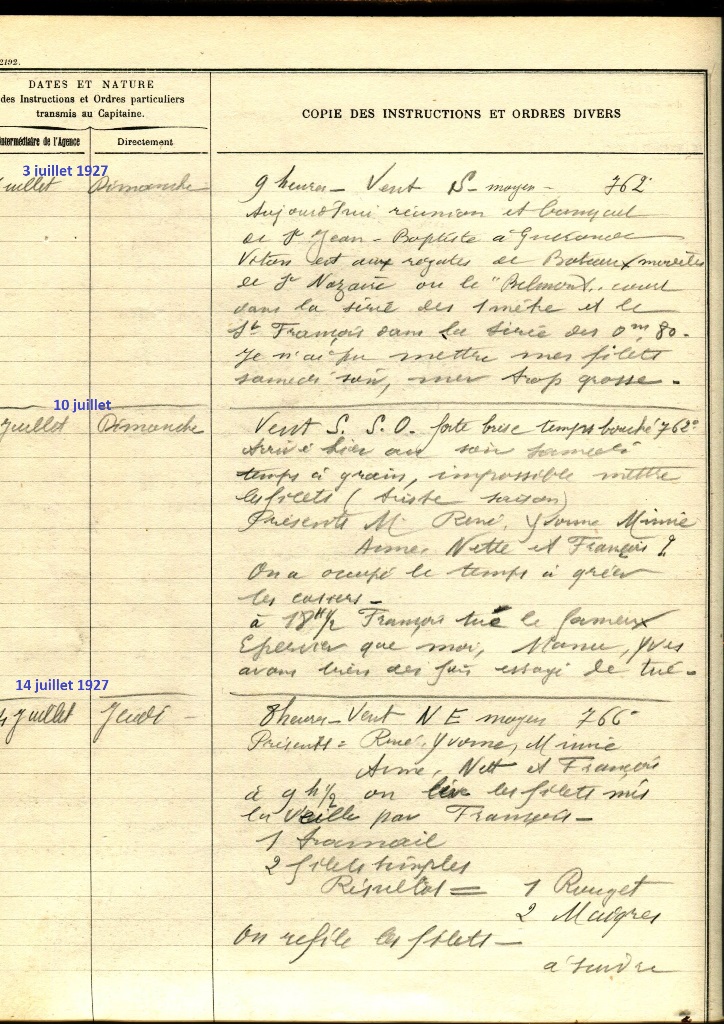 2192.
DATES ET NATURE
des Instructions et Ordres particuliers
transmis au Capitaine.
COPIE DES INSTRUCTIONS ET ORDRES DIVERS
Intermédiaire de l'Agence
Directement
3 juillet 1927
juillet Dimanche
9 heures - Vent S - moyen - 762
Aujourd'hui réunion et banquet
de St Jean - Baptiste à Guérande
est aux régates de Bateaux modèles
de St Nazaire ou le "Belmont" court
dans la série des 1 mètre et le
St François dans la série des 0m,80.
Je n'ai pu mettre mes filets
samedi soir, mer trop grosse.
10 juillet
Juillet Dimanche
Vent S. S. O. forte brise temps bouché 762
Arrivé hier au soir samedi
temps à grain, impossible mettre
les filets (triste saison)
Présents M. René, Yvonne Mimie
Anne, Nette et François
On a occupé le temps à gréer
les casiers -
à 18 H 1/2 François tue le fameux
Epervier que moi, Manu, Yves
avons bien des fois essayé de tué -
14 juillet 1927
Juillet Jeudi -
8 heures - Vent N E moyen 766
Présents = René, Yvonne, Mimie
Anne, Nett et François
à 9 h 1/2 on lève les filets mis
la veille par François -
1 tramail
2 filets simples
Résultat = 1 Rouget
2 Maigres
On refile les filets -
à suivre